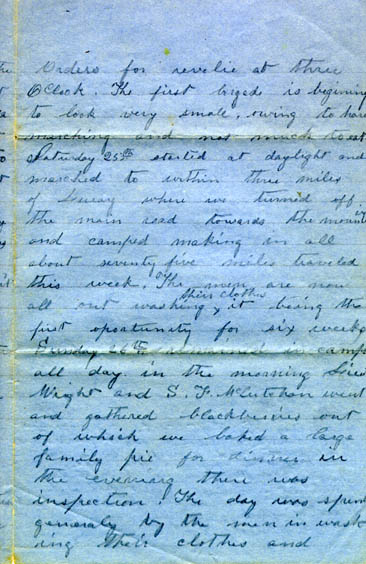 Orders for revelie at three
OClock. The first brigade is begining
to look very small, owing to hard
marching and not much to eat
Saturday 25th started at daylight and
marched to within three miles
of Luray where we turned off
the main road towards the mount
and camped making in all
about seventy five miles traveled
this week. The men are now
all out washing their clothes, it being the
first oportunity for six weeks
Sunday 26th remained in camp
all day in the morning Lieu
Wright and S. F. McCutchan went
and gathered blackberries out
of which we baked a large
family pie for dinner in
the evening there was
inspection. The day was spent
generaly by the men in wash
ing their clothes and